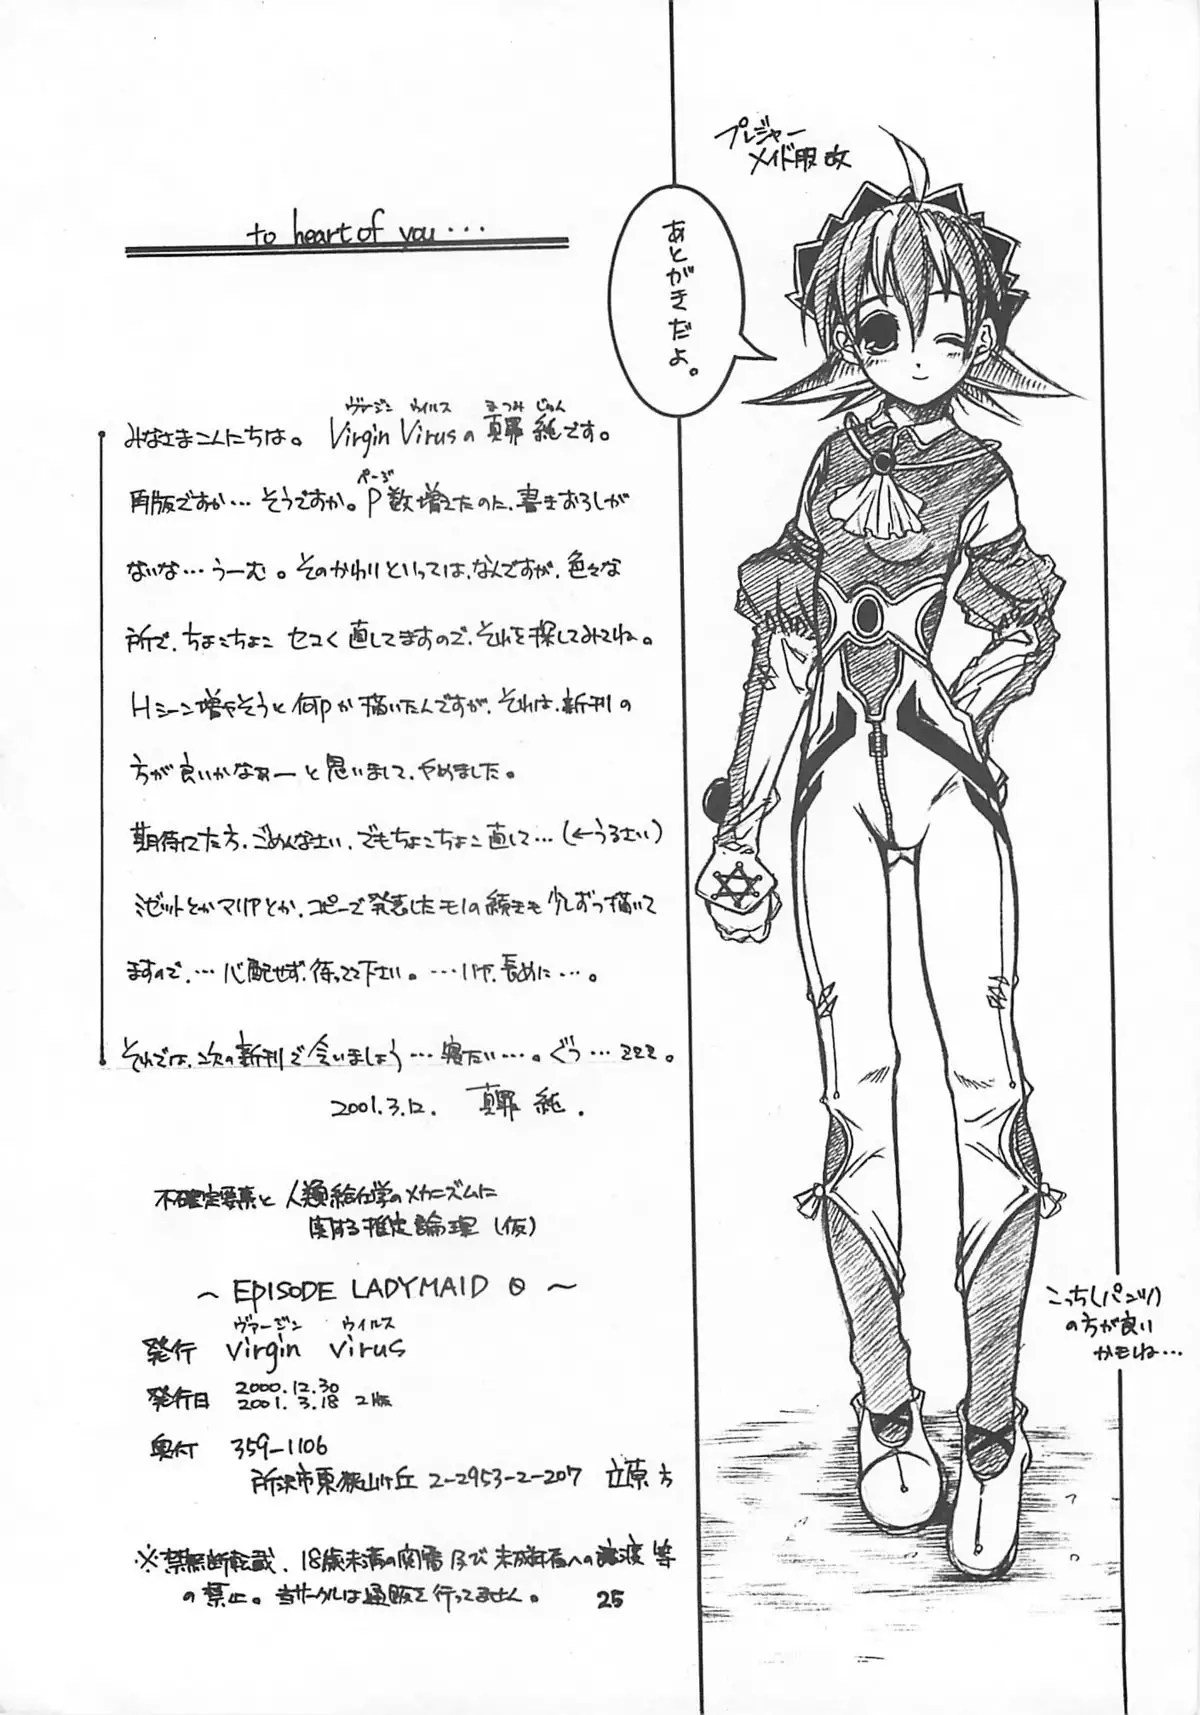 to heart of you・・・
みなさまこんにちは。 Virgin Virusの真罪 純です。
ヴァージン ウイルス まつみ じゅん
再版ですか…そうですか。P数増えたのに、書きおろしが
ページ
ないな…うーむ。そのかわりといっては、なんですが、色々な
所で、ちょこちょこ セコく直してますので、それを探してみてね。
Hシーン増やそうと何Pか描いたんですが、それは、新刊の
方が良いかなぁーと思いまして、やめました。
期待してた方、ごめんなさい、でもちょこちょこ直して…(←うるさい)
ミゼットとかマリアとか、コピーで発表したモノの続きも少しずつ描いて
ますので、…心配せず、待ってて下さい。…いや、長めに…。
それでは、次の新刊で会いましょう…寝たい…。ぐぅ…zzz。
2001.3.12. 真罪 純.
不確定要素と人類給仕学のメカニズムに
関する推定論理(仮)
～ EPISODE LADYMAID 0 ～
ヴァージン ウイルス
発行 virgin virus
発行日 2000.12.30
2001. 3.18 2版
奥付 359-1106
所沢市東狭山ヶ丘 2-2953-2-207 立原 方
※禁無断転載、18歳未満の閲覧及び未成年者への譲渡等
の禁止。当サークルは通販を行ってません。
25
プレジャー
メイド服改
あとがきだよ。
こっち(パンツ)
の方が良い
かもね…